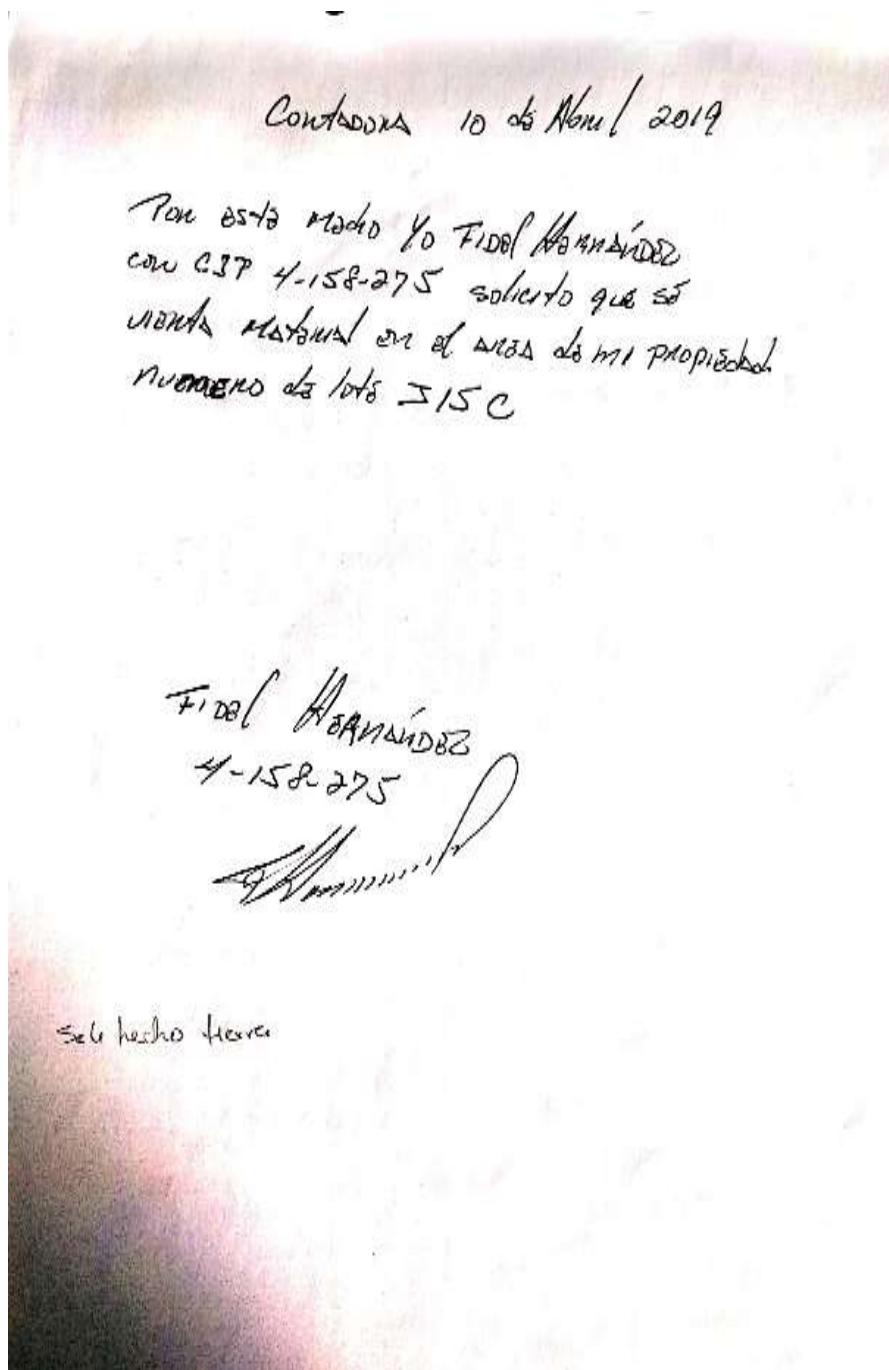 Contadora 10 de Abril 2019
Por este medio Yo Fidel Hernández
con CIP 4-158-275 solicito que se
vienta Material en el area de mi propiedad
numero de lote J15C
Fidel Hernández
4-158-275
Se le hecho tierra